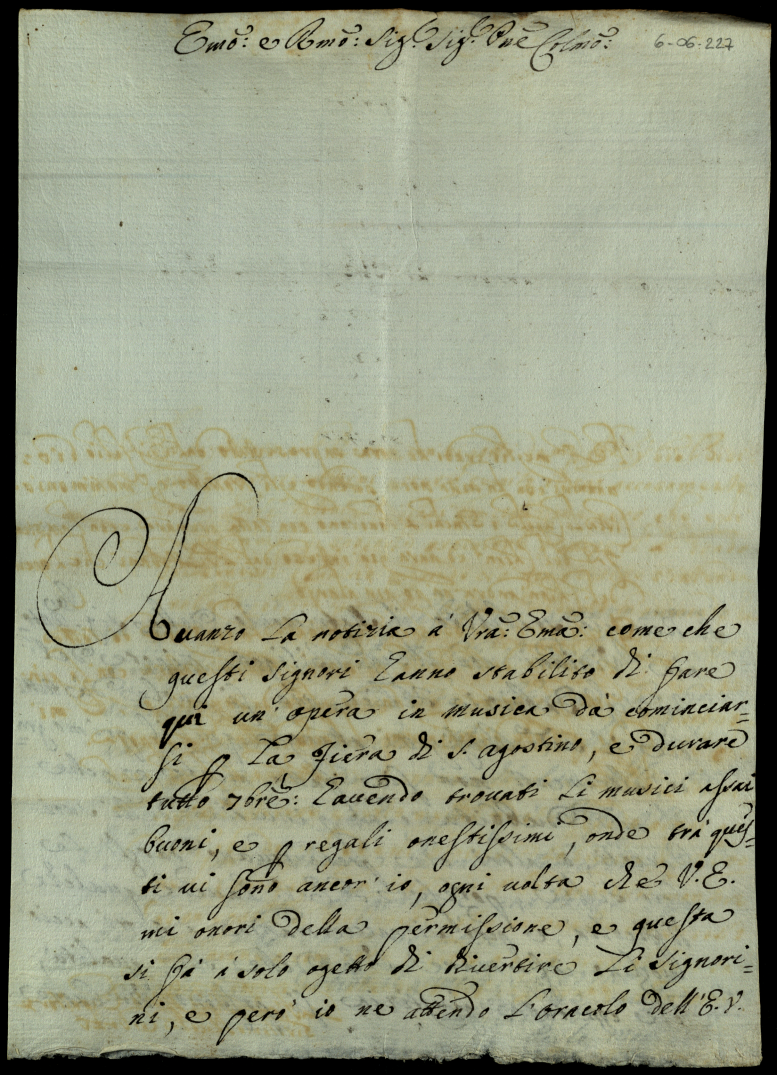 Emõ: e Rmõ: Sig.r Sig.r Pnẽ Colmõ:
6-06-227
Auanzo la notizia á Vrã: Emã: come che
questi Signori hanno stabilito di fare
qui un' opera in musica dà cominciar-
si p la Fiera di S. Agostino, e durare
tutto 7brẽ: hauendo trouati li musici assai
buoni, e p regali onestissimi, onde trà ques-
ti ui sono ancor' io, ogni uolta che V. E.
mi onori della permissione, e questa
si fà á solo ogetto di diuertire li Signori-
ni, e però io ne attendo l'oracolo dell' E. V.